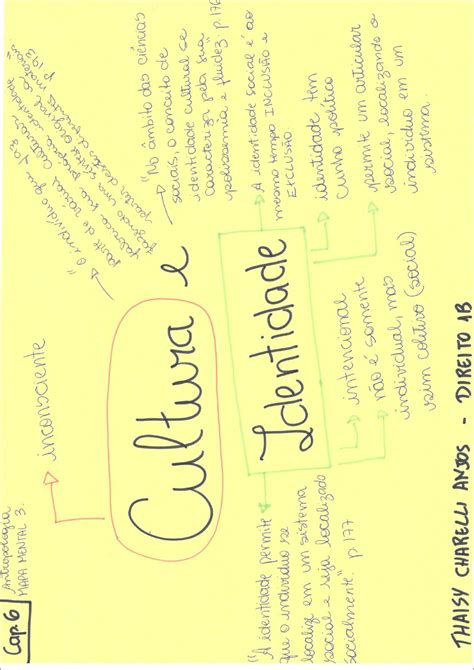 Cap. 6
Antropologia
MAPA MENTAL 3.
inconsciente
"O indivíduo que faz
parte de várias culturas
fabrica sua própria identidade
fazendo uma síntese original a
partir destes materiais"
p 193
"No âmbito das ciências
sociais, o conceito de
identidade cultural se
caracteriza pela sua
polissemia e fluidez. p. 176
Cultura e
Identidade
A identidade social é ao
mesmo tempo INCLUSÃO e
EXCLUSÃO.
identidade tem
cunho político
permite um articular
social, localizando o
indivíduo em um
sistema.
intencional
não é somente
individual, mas
sim coletivo (social)
"A identidade permite
que o indivíduo se
localize em um sistema
social e seja localizado
socialmente". p. 177
THAISY CHARELLI ANJOS - DIREITO 1B